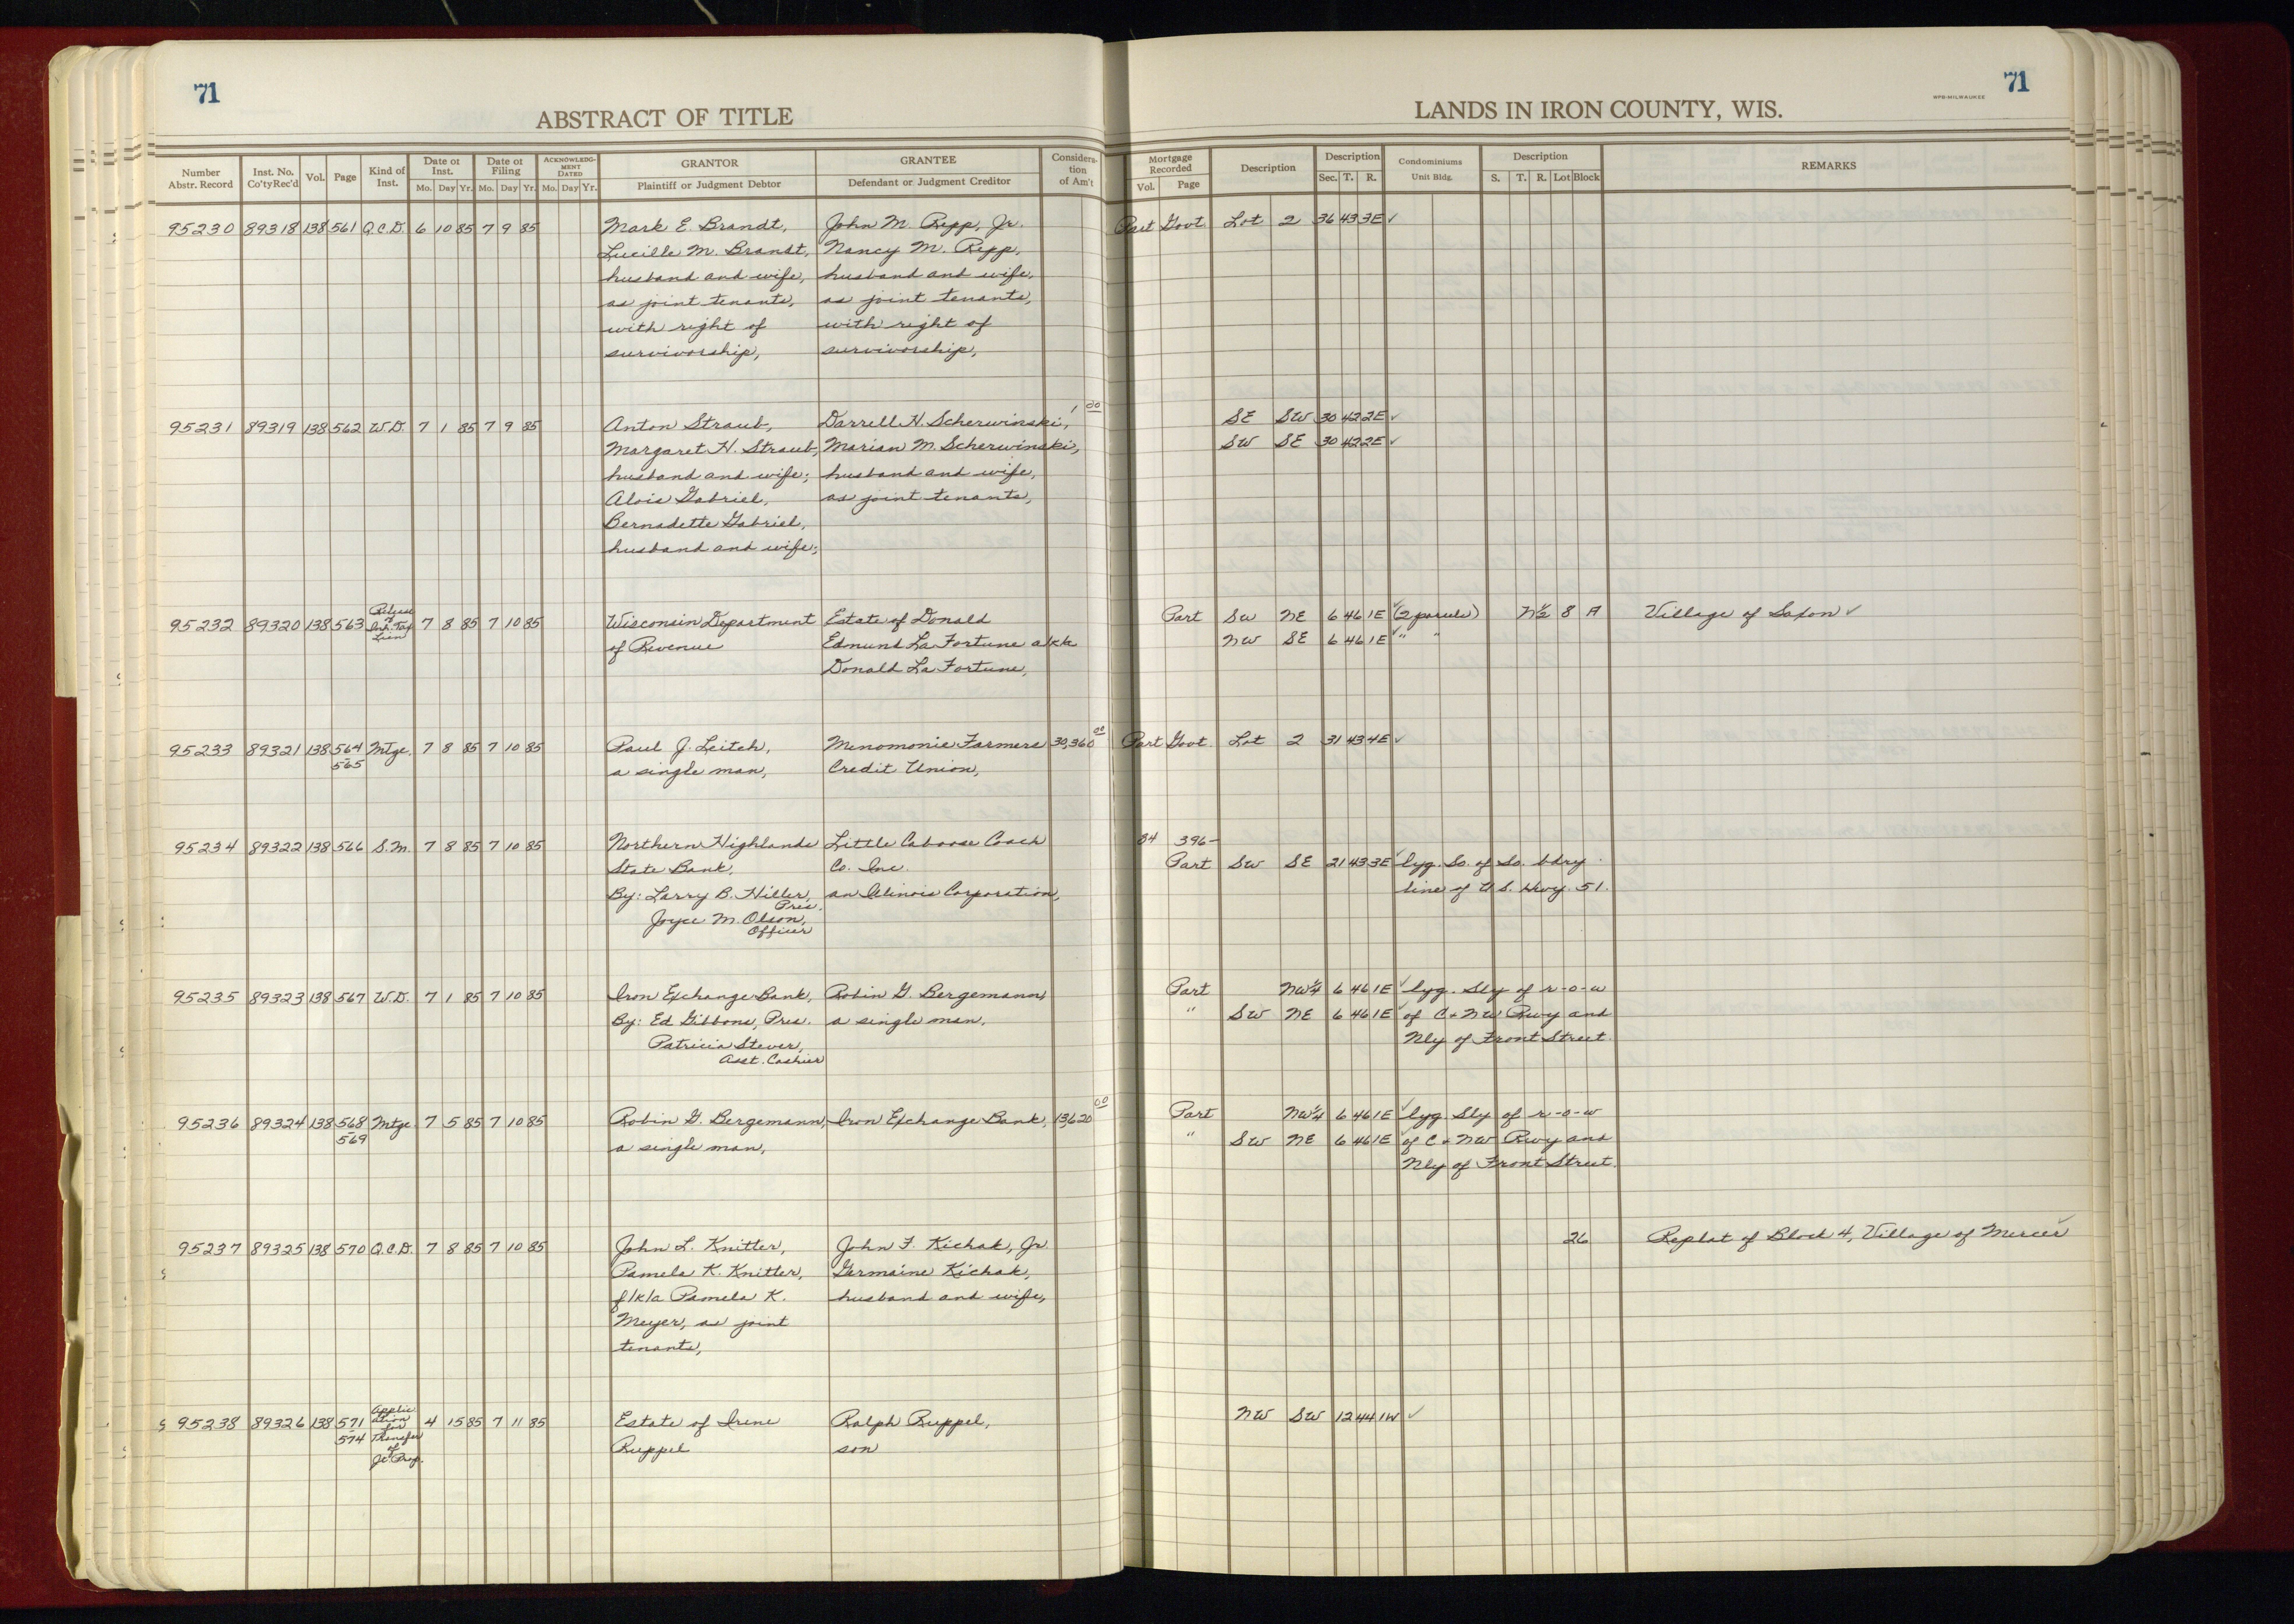 71
71
WPB-MILWAUKEE
ABSTRACT OF TITLE
LANDS IN IRON COUNTY, WIS.
Number Abstr. Record | Inst. No. Co'ty Rec'd | Vol. | Page | Kind of Inst. | Date of Inst. Mo. Day Yr. | Date of Filing Mo. Day Yr. | ACKNOWLEDG-MENT DATED Mo. Day Yr. | GRANTOR Plaintiff or Judgment Debtor | GRANTEE Defendant or Judgment Creditor | Considera-tion of Am't | Mortgage Recorded Vol. Page | Description | Description Sec. T. R. | Condominiums Unit Bldg. | Description S. T. R. Lot Block | REMARKS
95230 89318 138 561 Q.C.D. 6 10 85 7 9 85 Mark E. Brandt, John M. Repp, Jr. Part Govt Lot 2 36 43 3E ✓
Lucille M. Brandt, Nancy M. Repp,
husband and wife, husband and wife,
as joint tenants, as joint tenants,
with right of with right of
survivorship, survivorship,
95231 89319 138 562 W.D. 7 1 85 7 9 85 Anton Straub, Darrell H. Scherwinski, 1 00 SE SW 30 42 2E ✓
Margaret H. Straub, Marian M. Scherwinski, SW SE 30 42 2E ✓
husband and wife; husband and wife,
Alois Gabriel, as joint tenants,
Bernadette Gabriel,
husband and wife;
95232 89320 138 563 Release of Inh. Tax Lien 7 8 85 7 10 85 Wisconsin Department Estate of Donald Part SW NE 6 46 1E ✓ (2 parcels) N½ 8 A Village of Saxon ✓
of Revenue Edmund La Fortune a/k/a NW SE 6 46 1E ✓ " "
Donald La Fortune,
95233 89321 138 564-565 Mtge. 7 8 85 7 10 85 Paul J. Leitch, Menomonie Farmers 30,360 00 Part Govt. Lot 2 31 43 4E ✓
a single man, Credit Union,
95234 89322 138 566 S.M. 7 8 85 7 10 85 Northern Highlands Little Caboose Coach 84 396-
State Bank, Co. Inc. Part SW SE 21 43 3E ✓ lyg. So. of So. bdry.
By: Larry B. Hiller, Pres. an Illinois Corporation, line of U.S. Hwy. 51.
Joyce M. Olson, Officer
95235 89323 138 567 W.D. 7 1 85 7 10 85 Iron Exchange Bank, Robin G. Bergemann, Part NW¼ 6 46 1E ✓ lyg. Sly of r-o-w
By: Ed Gibbons, Pres. a single man, " SW NE 6 46 1E ✓ of C + NW Rwy and
Patricia Stever, Nly of Front Street.
Asst. Cashier
95236 89324 138 568-569 Mtge. 7 5 85 7 10 85 Robin G. Bergemann, Iron Exchange Bank, 13,620 00 Part NW¼ 6 46 1E ✓ lyg Sly of r-o-w
a single man, " SW NE 6 46 1E ✓ of C + NW Rwy and
Nly of Front Street.
95237 89325 138 570 Q.C.D. 7 8 85 7 10 85 John L. Knitter, John F. Kichak, Jr 26 Replat of Block 4, Village of Mercer ✓
Pamela K. Knitter, Germaine Kichak,
f/k/a Pamela K. husband and wife,
Meyer, as joint
tenants,
95238 89326 138 571-574 Application for Transfer of Jt. Prop. 4 15 85 7 11 85 Estate of Irene Ralph Ruppel, NW SW 12 44 1W ✓
Ruppel son